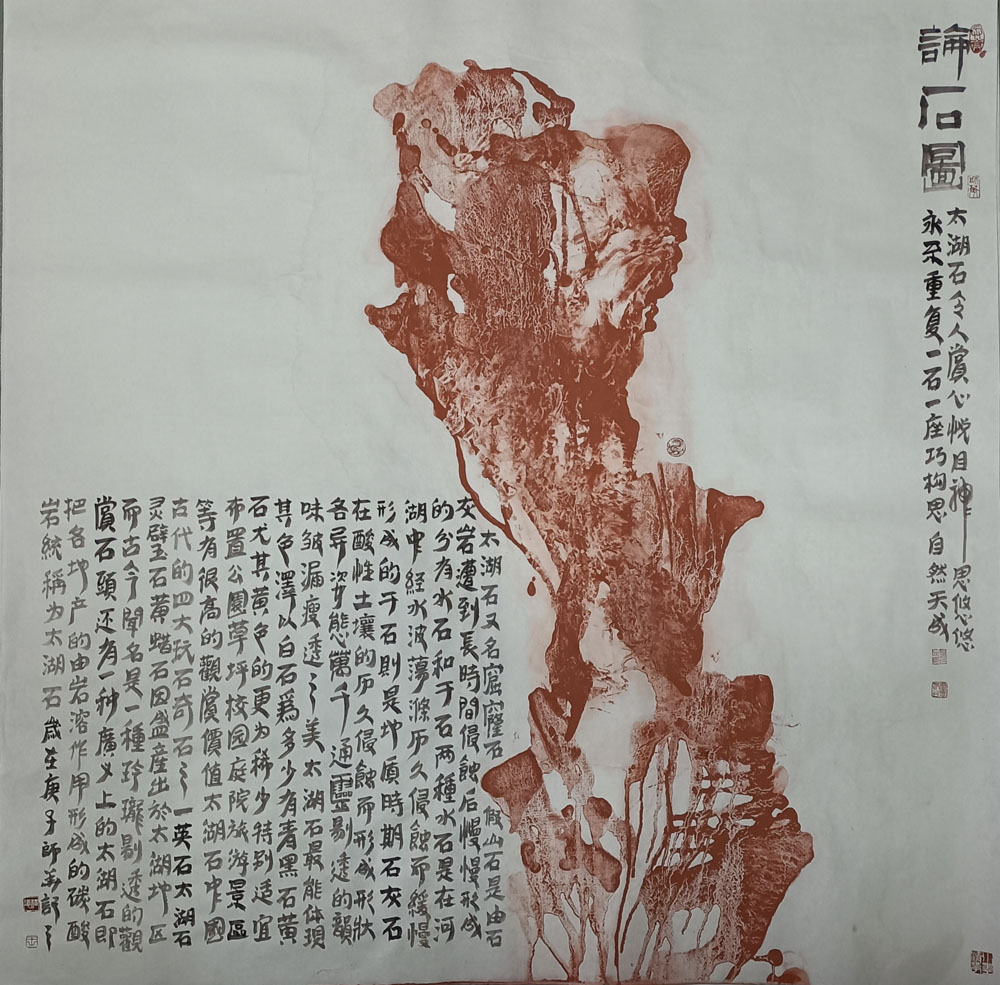 論石圖
太湖石令人賞心悦目神思悠悠
永不重复一石一座巧构思自然天成
太湖石又名窟窿石假山石是由石
灰岩遭到長時間侵蝕后慢慢形成
的分有水石和干石两種水石是在河
湖中経水波蕩滌历久侵蝕而緩慢
形成的干石則是地质時期石灰石
在酸性土壤的历久侵蝕而形成形狀
各异姿態萬千通靈剔透的韻
味皱漏瘦透之美太湖石最能体現
其色澤以白石爲多少有青黑石黄
石尤其黄色的更为稀少特别适宜
布置公園草坪校园庭院旅游景区
等有很高的觀賞價值太湖石中國
古代的四大玩石奇石之一英石太湖石
灵壁石黄蜡石因盛産出於太湖地区
而古今聞名是一種玲瓏剔透的觀
賞石頭还有一种廣义上的太湖石即
把各地产的由岩溶作用形成的碳酸
岩統稱为太湖石歲在庚子師記之